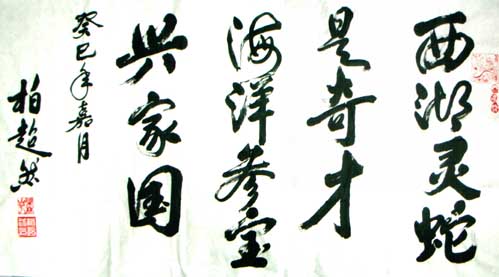 西湖灵蛇
是奇才
海洋参宝
兴家国
癸巳年嘉月
柏超然